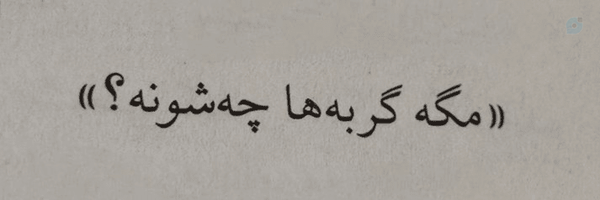 «مگه گربه‌ها چه‌شونه؟»